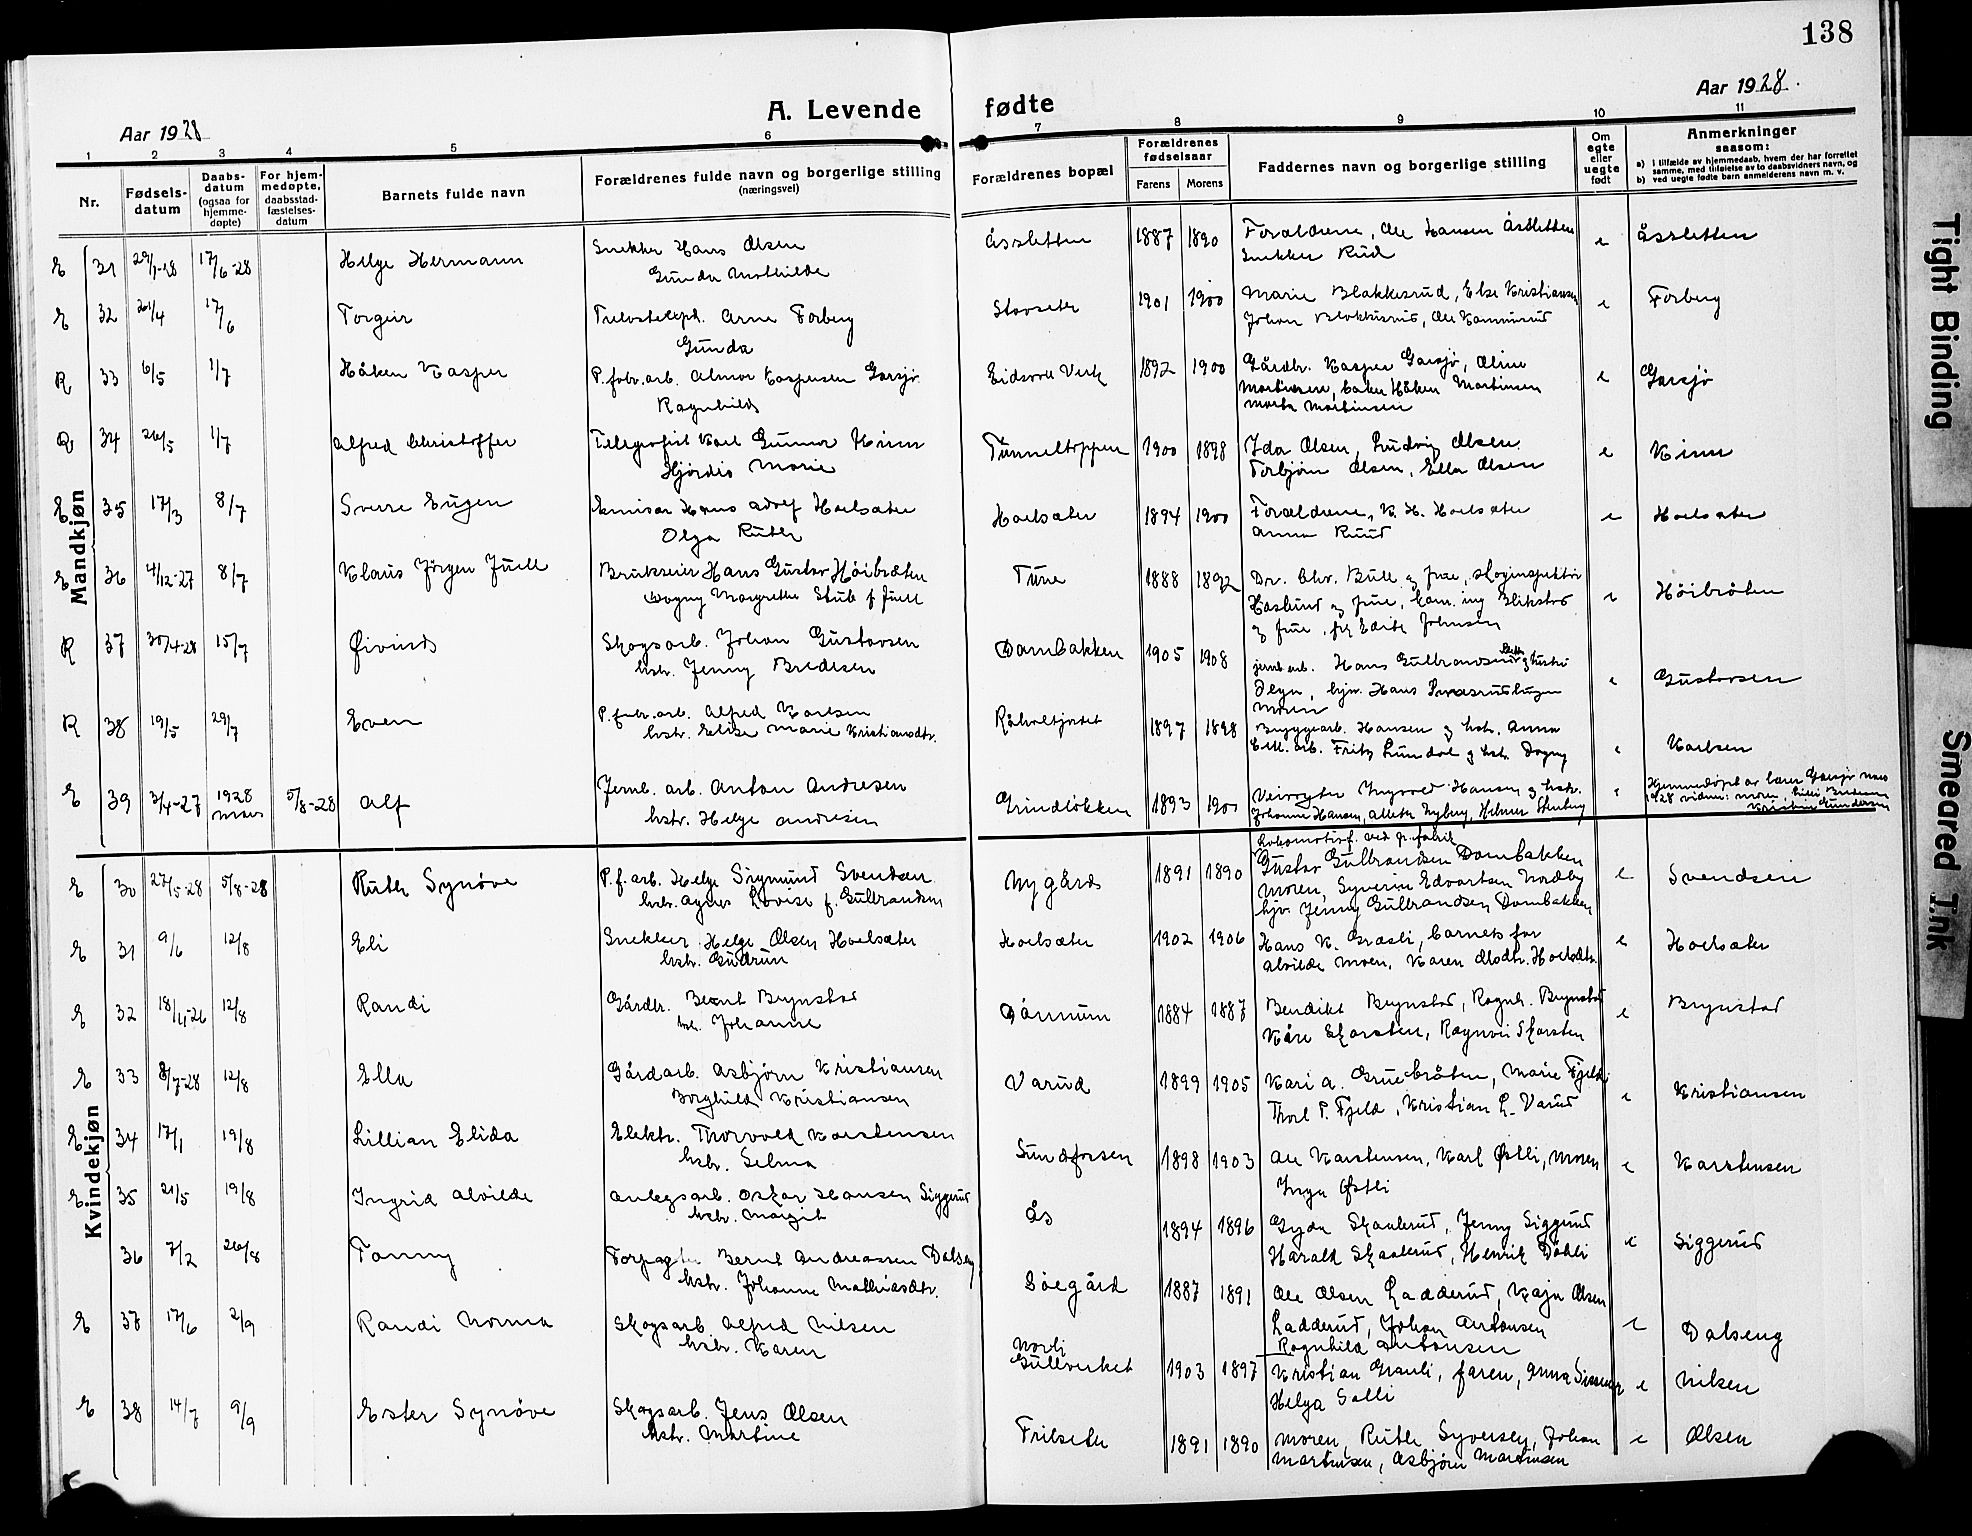 138
Aar 1928
A. Levende fødte
Aar 1928.
1 2 3 4 5 6 7 8 9 10 11
Nr.
Fødsels-
datum
Daabs-
datum
(ogsaa for
hjemme-
døpte)
For hjem-
medøpte,
daabsstad-
fæstelses-
datum
Barnets fulde navn
Forældrenes fulde navn og borgerlige stilling
(næringsvei)
Forældrenes bopæl
Forældrenes
fødselsaar
Farens Morens
Faddernes navn og borgerlige stilling
Om
egte
eller
uegte
født
Anmerkninger
saasom:
a) i tilfælde av hjemmedaab, hvem der har forrettet
samme, med tilføielse av to daabsvidners navn, og
b) ved uegte fødte barn anmelderens navn m. v.
Mandkjøn
E 31 29/1-28 17/6-28 Helge Hermann Snekker Hans Olsen Åssletten 1887 1890 Forældrene, Ole Hansen Åssletten e Åssletten
Gunda Mathilde Snekker Rud
E 32 21/4 17/6 Torgeir Arne Forberg Stovseter 1901 1900 Marie Blakkesrud, Else Kristiansen e Forberg
Gunda Johan Blakkesrud, Ole
R 33 6/5 1/7 Håken Kasper P. fabr. arb. Almor Kaspersen Garsjø Eidsvoll Verk 1892 1900 Gårdbr. Kasper Garsjø, Oline e Garsjø
Ragnhild Martinsen, Håken Martinsen
Marta Martinsen
R 34 26/5 1/7 Alfred Christoffer Telegrafist Karl Gunnar Kinn Tunneltoppen 1900 1898 Ida Olsen, Ludvig Olsen e Kinn
Hjørdis Marie Torbjørn Olsen, Ella Olsen
E 35 17/3 8/7 Sverre Eugen Emisær Hans Adolf Hoelsæter Hoelsæter 1894 1900 Forældrene, K. H. Hoelsæter e Hoelsæter
Olga Ruth Anna Ruud
E 36 4/12-27 8/7 Klaus Jørgen Juell Brukseier Hans Gustav Høibråten Tune 1888 1892 Dr. Chr. Bull og frue, skoginspektør e Høibråten
Dagny Margrethe Stub f. Juell Haslund og frue, ing. Blikstad
og frue, frk Edith Johnsen
R 37 30/4-28 15/7 Øivind Skogsarb. Johan Gustavsen Dambakken 1905 1908 jernb. arb. Hans Gulbrandsen og hustru e Gustavsen
hstr. Jenny Bredesen
Moren
R 38 19/5 29/7 Even P. fabr. arb. Alfred Karlsen Råholtjordet 1897 1898 Bryggearb. Hansen og hstr. Anna e Karlsen
hstr. Elise Marie Kristiansdtr. arb. Fritz Lundal og hstr. Dagny
E 39 3/4-27 1928 mars 5/8-28 Alf Jernb. arb. Anton Andresen Grindløkken 1893 Ingvar Hansen og hstr. Hjemmedøpt av lærer Garsjø mars
hstr. Helga Andresen Johanne Hansen, Alette Nyberg, Helmer Stenberg 1928 vidner: moren,
Kristine Gundersen
Kvindekjøn
E 30 27/5-28 5/8-28 Ruth Synøve P. f. arb. Helge Sigmund Svendsen Nygård 1891 1890 Lokomotivf. ved p. fabrik e Svendsen
hstr. Agnes Lovise f. Gulbrandsen Gustav Gulbrandsen Dambakken
Moren, Syverin Edvartsen Nordby
hjv. Jenny Gulbrandsen Dambakken
E 31 9/6 12/8 Eli Snekker Helge Olsen Hoelsæter Hoelsæter 1902 1906 Hans K. Græsli, barnets far e Hoelsæter
hstr. Gudrun Alvilde Moen, Karen Olsdtr. Hoelsætr.
E 32 18/11-26 12/8 Randi Gårdbr. Bernt Brynstad Dønnum 1884 1887 Bendikt Brynstad, Ragnh. Brynstad e Brynstad
hst. Johanne Kåre Skarsten, Ragnvei Skarsten
E 33 8/7-28 12/8 Ella Gårdarb. Asbjørn Kristiansen Varud 1899 1905 Kari A. Gruebråten, Marie Fjeld e Kristiansen
Borghild Kristiansen Thorl P. Fjeld, Kristian L. Varud
E 34 17/1 19/8 Lillian Elida Elektr. Thorvald Karstensen Sundfossen 1898 1903 Ole Karstensen, Karl Østli, Moren e Karstensen
hstr. Selma Inga Østli
E 35 21/5 19/8 Ingrid Alvilde Anlegsarb. Oskar Hansen Siggerud Ås 1894 1896 Gyda Skaslerud, Jenny Siggerud e Siggerud
hstr. Margit Harald Skaslerud, Henrik Døhli
36 7/2 26/8 Fanny Forpagter Bernt Andreassen Dalseng Søegård 1887 1891 Ole Olsen Ladderud, Kaja Olsen e Dalseng
hstr. Johanne Mathiasdtr. Ladderud, Johan Antonsen
Ragnhild Antonsen
E 37 17/6 2/9 Randi Norma Skogsarb. Alfred Nilsen Nordli Gullverket 1903 1897 Kristian Granli, faren, Anna e Nilsen
hstr. Karen Helga Solli
E 38 14/7 9/9 Ester Synøve Skogsarb. Jens Olsen Frilseter 1891 1890 Moren, Ruth Syversen, Johan e Olsen
hstr. Martine Martinsen, Asbjørn Martinsen
Tight Binding
Smeared Ink